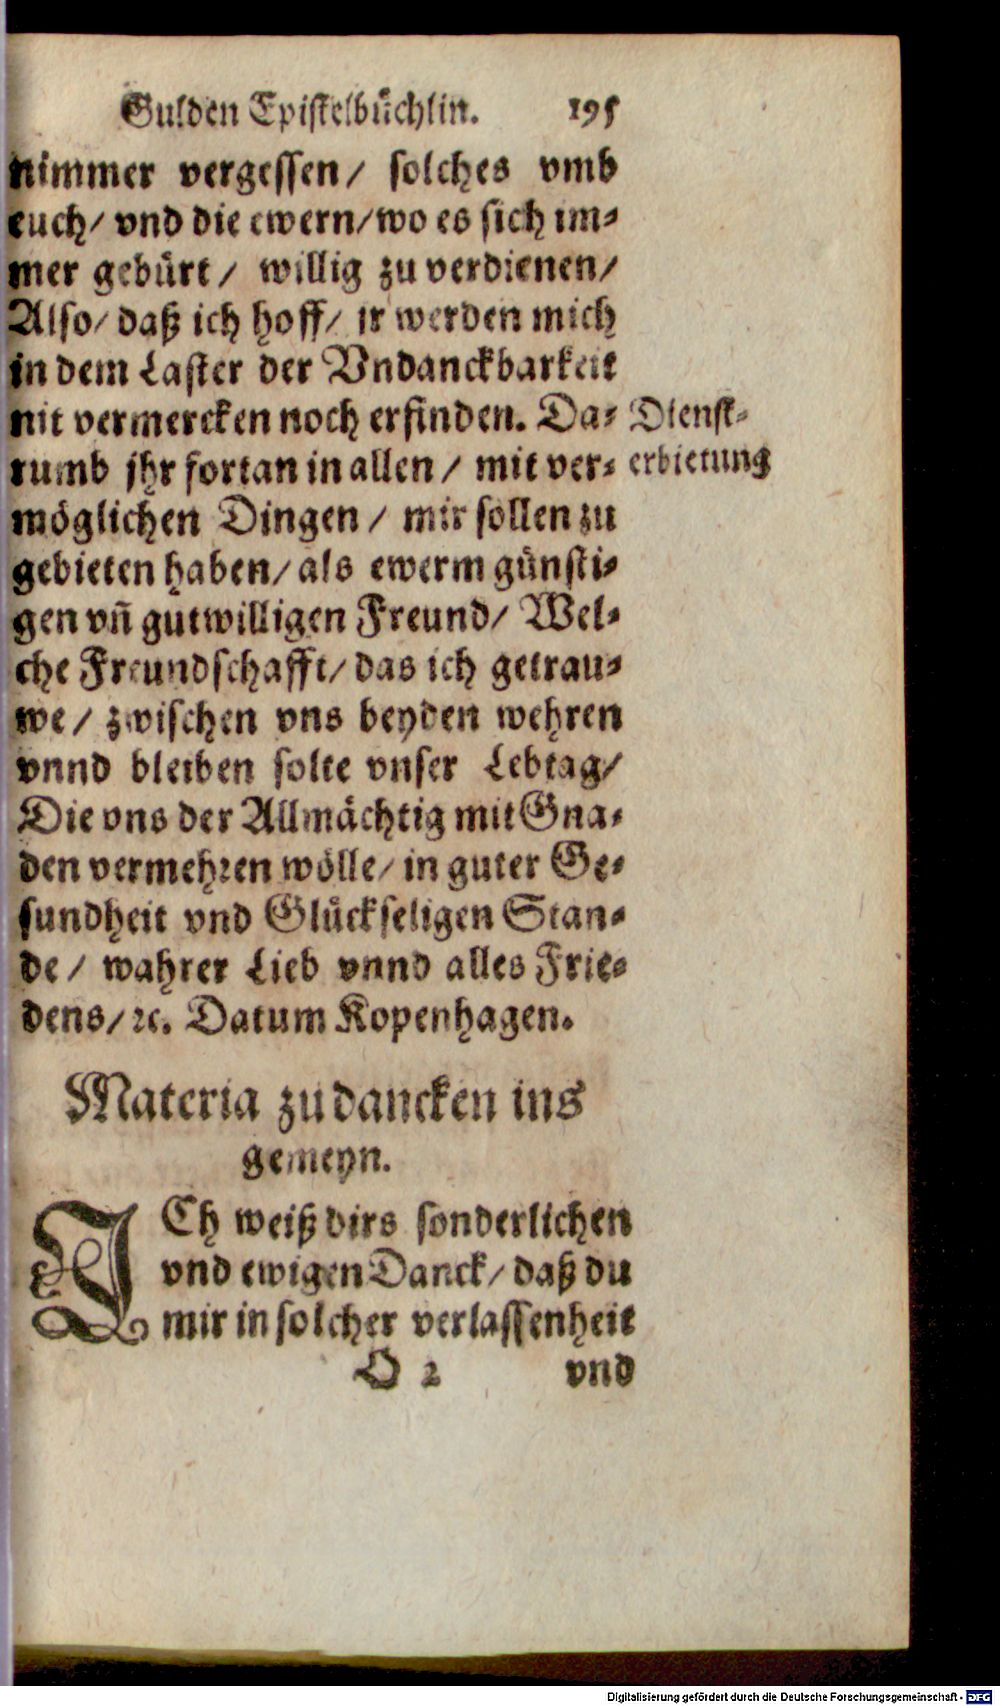 Gulden Epistelbüchlin. 195
nimmer vergessen/ solches vmb
euch/ vnd die ewern/ wo es sich im-
mer gebürt/ willig zu verdienen/
Also/ daß ich hoff/ jr werden mich
in dem Laster der Vndanckbarkeit
nit vermercken noch erfinden. Da-
rumb jhr fortan in allen/ mit ver-
möglichen Dingen/ mir sollen zu
gebieten haben/ als ewerm günsti-
gen vñ gutwilligen Freund/ Wel-
che Freundschafft/ das ich getrau-
we/ zwischen vns beyden wehren
vnnd bleiben solte vnser Lebtag/
Die vns der Allmächtig mit Gna-
den vermehren wölle/ in guter Ge-
sundheit vnd Glückseligen Stan-
de/ wahrer Lieb vnnd alles Frie-
dens/ ꝛc. Datum Kopenhagen.
Dienst-
erbietung
Materia zu dancken ins
gemeyn.
ICh weiß dirs sonderlichen
vnd ewigen Danck/ daß du
mir in solcher verlassenheit
O 2 vnd
Digitalisierung gefördert durch die Deutsche Forschungsgemeinschaft - DFG